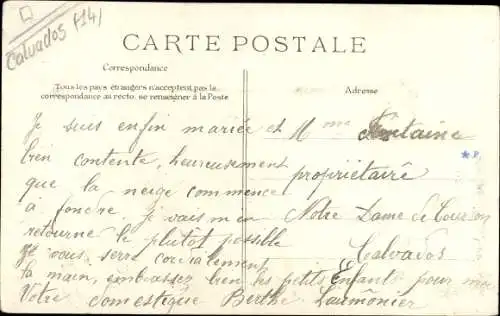 Calvados (14)
CARTE POSTALE
Correspondance
Tous les pays étrangers n'acceptent pas la
correspondance au recto, se renseigner à la Poste
Je suis enfin mariée et
bien contente, heureusement
que la neige commence
à fondre. Je vais m'en
retourne le plutôt possible
Je vous serre cordialement
la main, embrassez bien les petits Enfants pour moi
Votre domestique Berthe Laumônier
Adresse
Mme Fontaine
propriétaire
Notre Dame de
Calvados